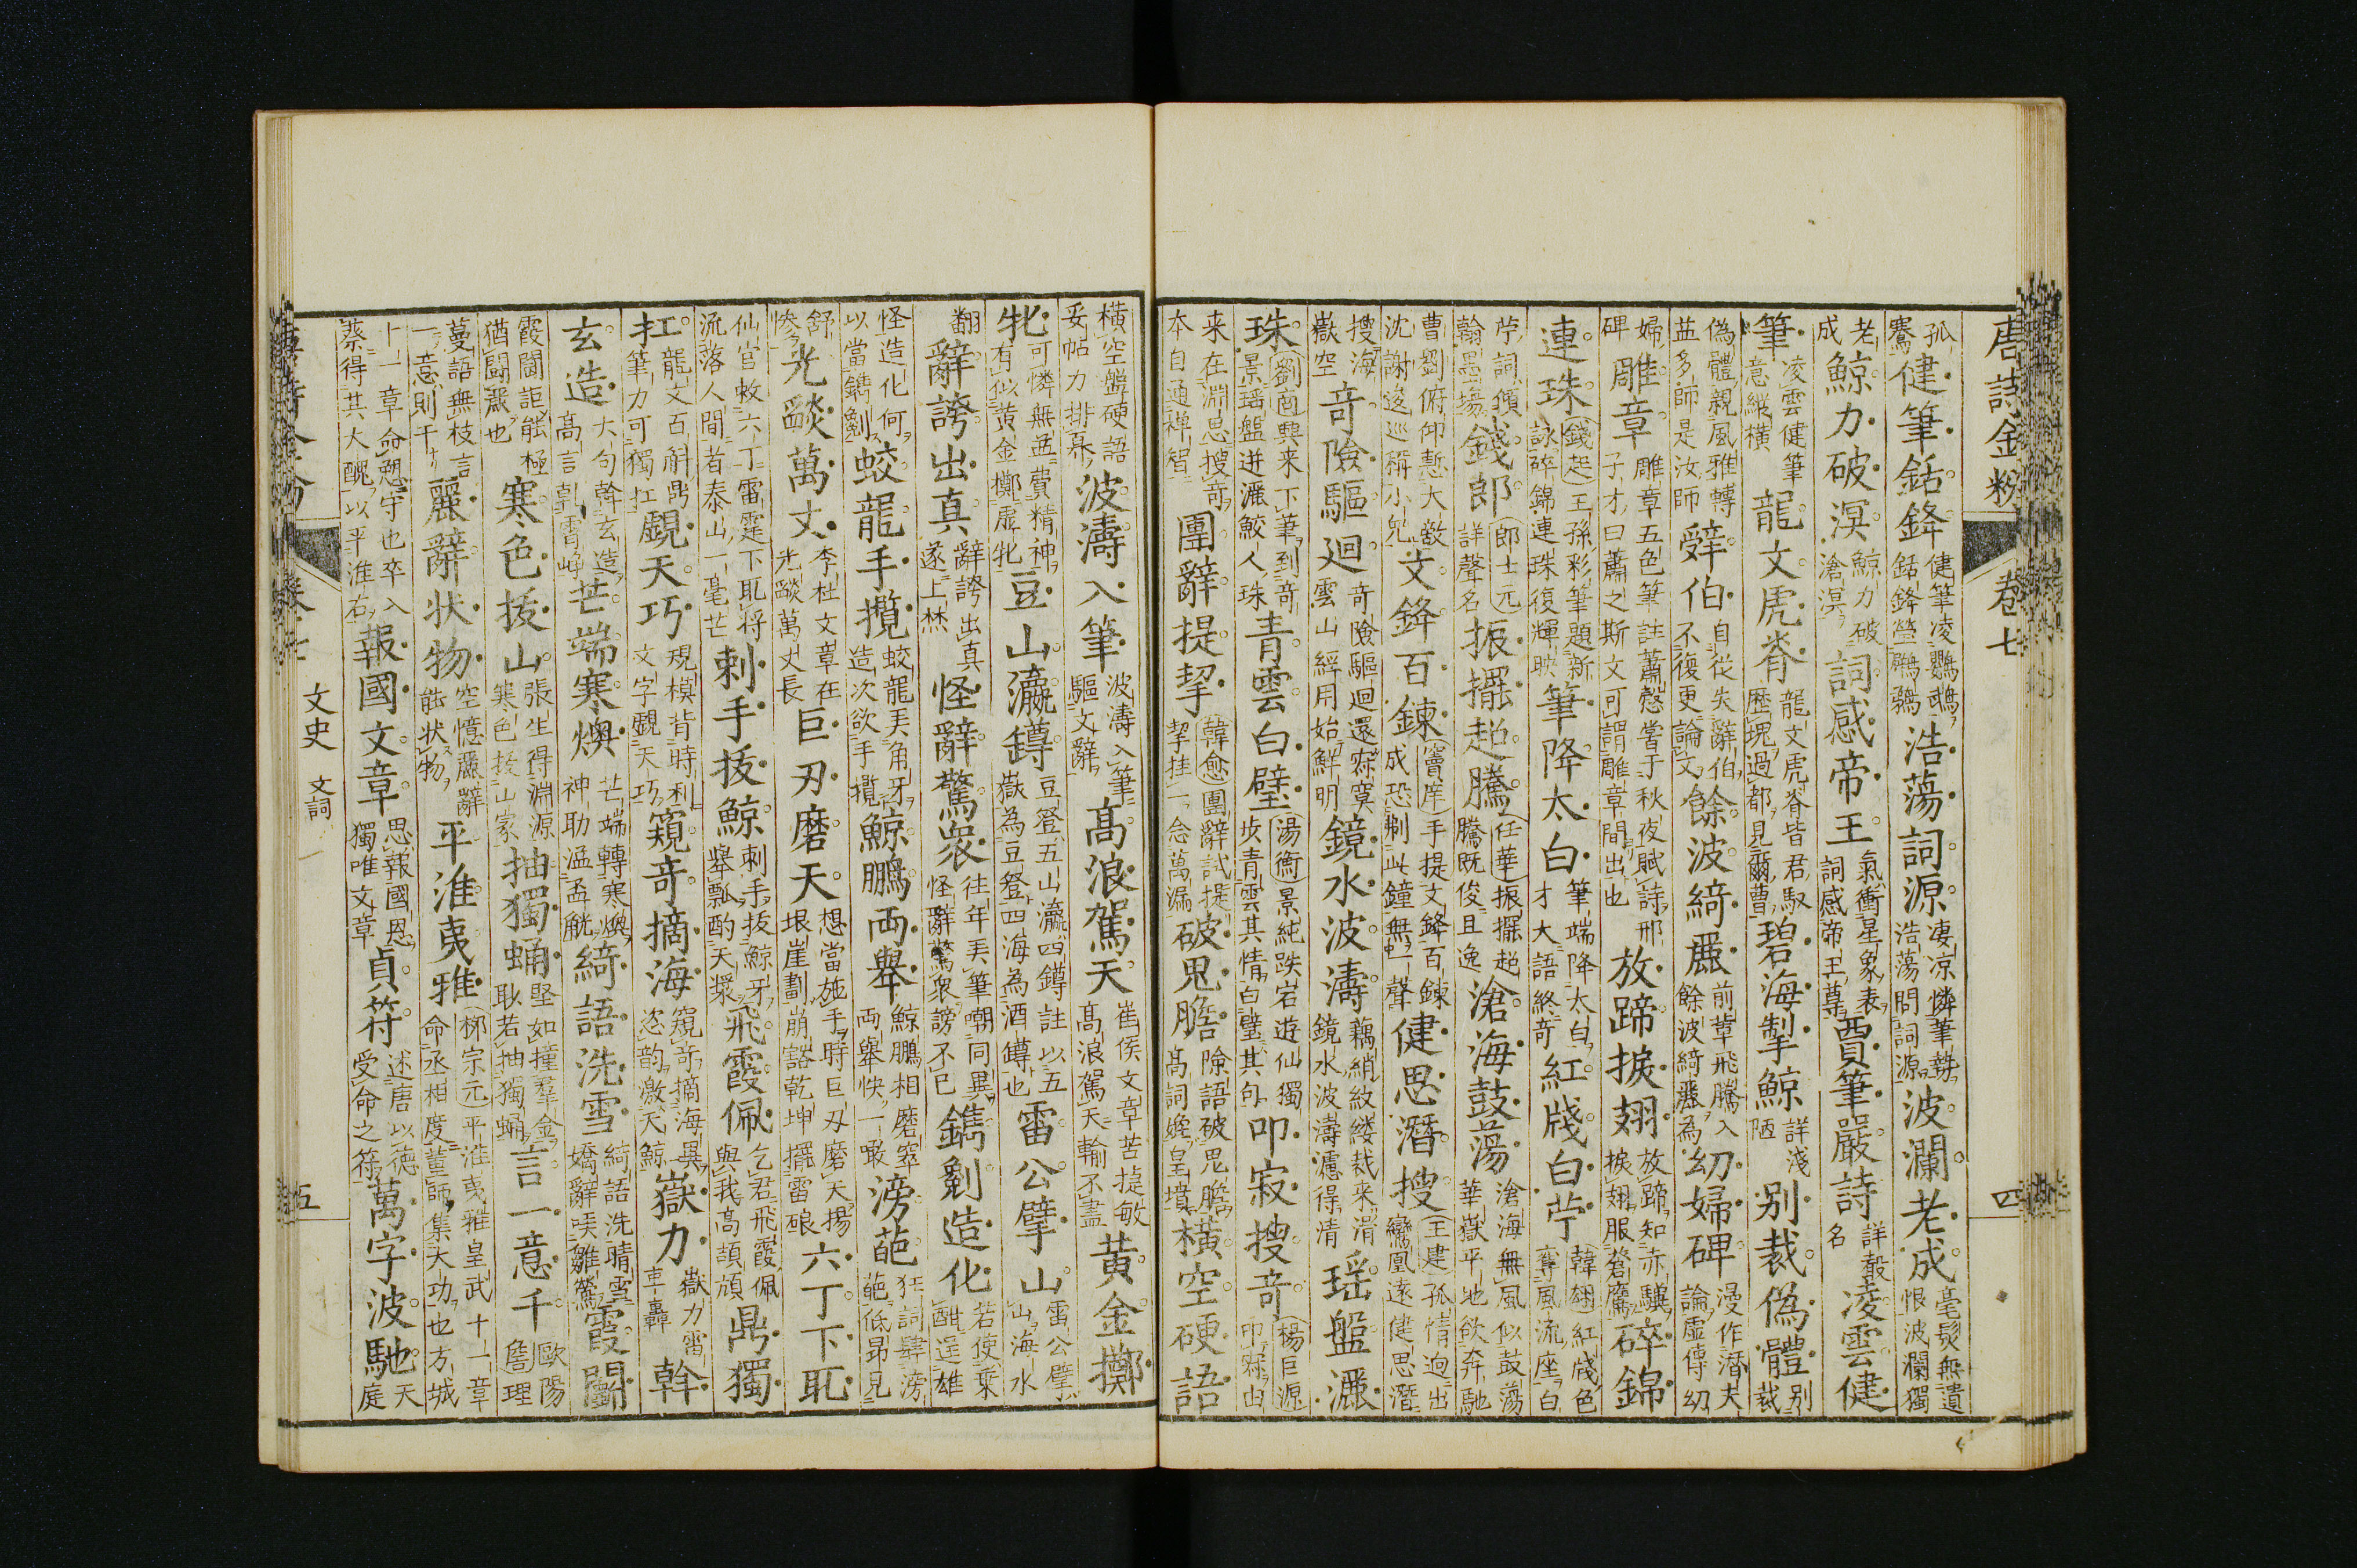 唐詩金粉 卷七 四
孤騫 健筆銛鋒 健筆凌鸚鵡銛鋒瑩鸊鵜 浩蕩詞源 凄凉憐筆勢浩蕩問詞源 波瀾老成 毫髮無遺恨波瀾獨
老成 鯨力破溟 鯨力破滄溟 詞感帝王 氣衝星象表詞感帝王尊 賈筆嚴詩 詳殽名 凌雲健
筆 凌雲健筆意縱橫 龍文虎脊 龍文虎脊皆君馭歷塊過都見爾曹 碧海掣鯨 詳淺陋 别裁偽體 别裁
偽體親風雅轉益多師是汝師 辭伯 自從失辭伯不復更論文 餘波綺麗 前輩飛騰入餘波綺麗為 幼婦碑 漫作潛夫論虛傳幼
婦碑 雕章 雕章五色筆註蕭愨嘗于秋夜賦詩邢子才曰蕭之斯文可謂雕章間出也 放蹄捩翅 放蹄知赤驥捩翅服蒼鷹 碎錦
連珠 錢起 王孫彩筆題新詠碎錦連珠復輝映 筆降太白 筆端降太白才大語終奇 紅牋白苧 韓翃 紅牋色奪風流座白
苧詞傾翰墨場 錢郎 郎士元 詳聲名 振擺超騰 任華 振擺超騰既俊且逸 滄海鼓蕩 滄海無風似鼓蕩華嶽平地欲奔馳
曹劉俯仰慙大敵沈謝逡巡稱小兒 文鋒百鍊 竇庠 手提文鋒百鍊成恐刜此鐘無一聲 健思潛搜 王建 孤情迥出鸞凰遠健思潛
搜海嶽空 奇險驅迴 奇險驅迴還寂寞雲山經用始鮮明 鏡水波濤 藕綃紋縷裁来滑鏡水波濤濾得清 瑶盤灑
珠 劉商 興来下筆到奇景瑶盤迸灑鮫人珠 青雲白璧 湯衡 景純跌宕遊仙獨步青雲其情白璧其句 叩寂搜奇 楊巨源 叩寂由
来在淵思搜奇本自通禅智 團辭提挈 韓愈 團辭試提挈挂一念萬漏 破鬼膽 險語破鬼膽高詞媲皇墳 橫空硬語
橫空盤硬語妥帖力排奡 波濤入筆 波濤入筆驅文辭 高浪駕天 崔侯文章苦捷敏高浪駕天輸不盡 黄金擲
牝 可憐無益費精神有似黄金擲虛牝 豆山瀛鐏 豆登五山瀛四鐏註以五嶽為豆登四海為酒鐏也 雷公擘山 雷公擘山海水
翻 辭誇出真 辭誇出真遂上焚 怪辭驚衆 往年弄筆嘲同異怪辭驚衆謗不已 鐫劖造化 若使乗酣逞雄
怪造化何以當鐫劖 蛟龍手攬 蛟龍弄角牙造次欲手攬 鯨鵬両舉 鯨鵬相磨窣両舉快一噉 滂葩 狂詞肆滂葩低昂見
舒慘 光燄萬丈 李杜文章在光燄萬丈長 巨刃磨天 想當施手時巨刃磨天揚垠崖劃崩豁乾坤擺雷硠 六丁下取
仙官敕六丁雷霆下取将流落人間者泰山一毫芒 刺手拔鯨 刺手拔鯨牙舉瓢酌天漿 飛霞佩 乞君飛霞佩與我高頡頏 鼎獨
扛 龍文百斛鼎筆力可獨扛 覷天巧 規模背時利文字覷天巧 窺奇摘海 窺奇摘海異恣韵激天鯨 嶽力 嶽力雷車轟 斡
玄造 大句斡玄造高言軋霄峥 芒端寒燠 芒端轉寒燠神助溢盃觥 綺語洗雪 綺語洗晴雪嬌辭哢雛鶯 霞鬬
霞鬬詎能極猶鬬叢也 寒色拔山 張生得淵源寒色拔山冢 抽獨蛹 堅如撞羣金眇若抽獨蛹 言一意千 歐陽詹 理
蔓語無枝言一意則千 麗辭状物 空憶麗辭能状物 平淮夷雅 柳宗元 平淮夷雅皇武十一章命丞相度董師集大功也方城
十一章命愬守也卒入蔡得其大醜以平淮右 報國文章 思報國恩獨唯文章 貞符 述唐以德受命之符 萬字波馳 天庭
文史 文詞 五